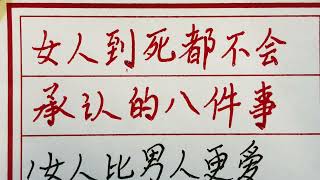 女人到死都不会
承认的八件事
1女人比男人更爱